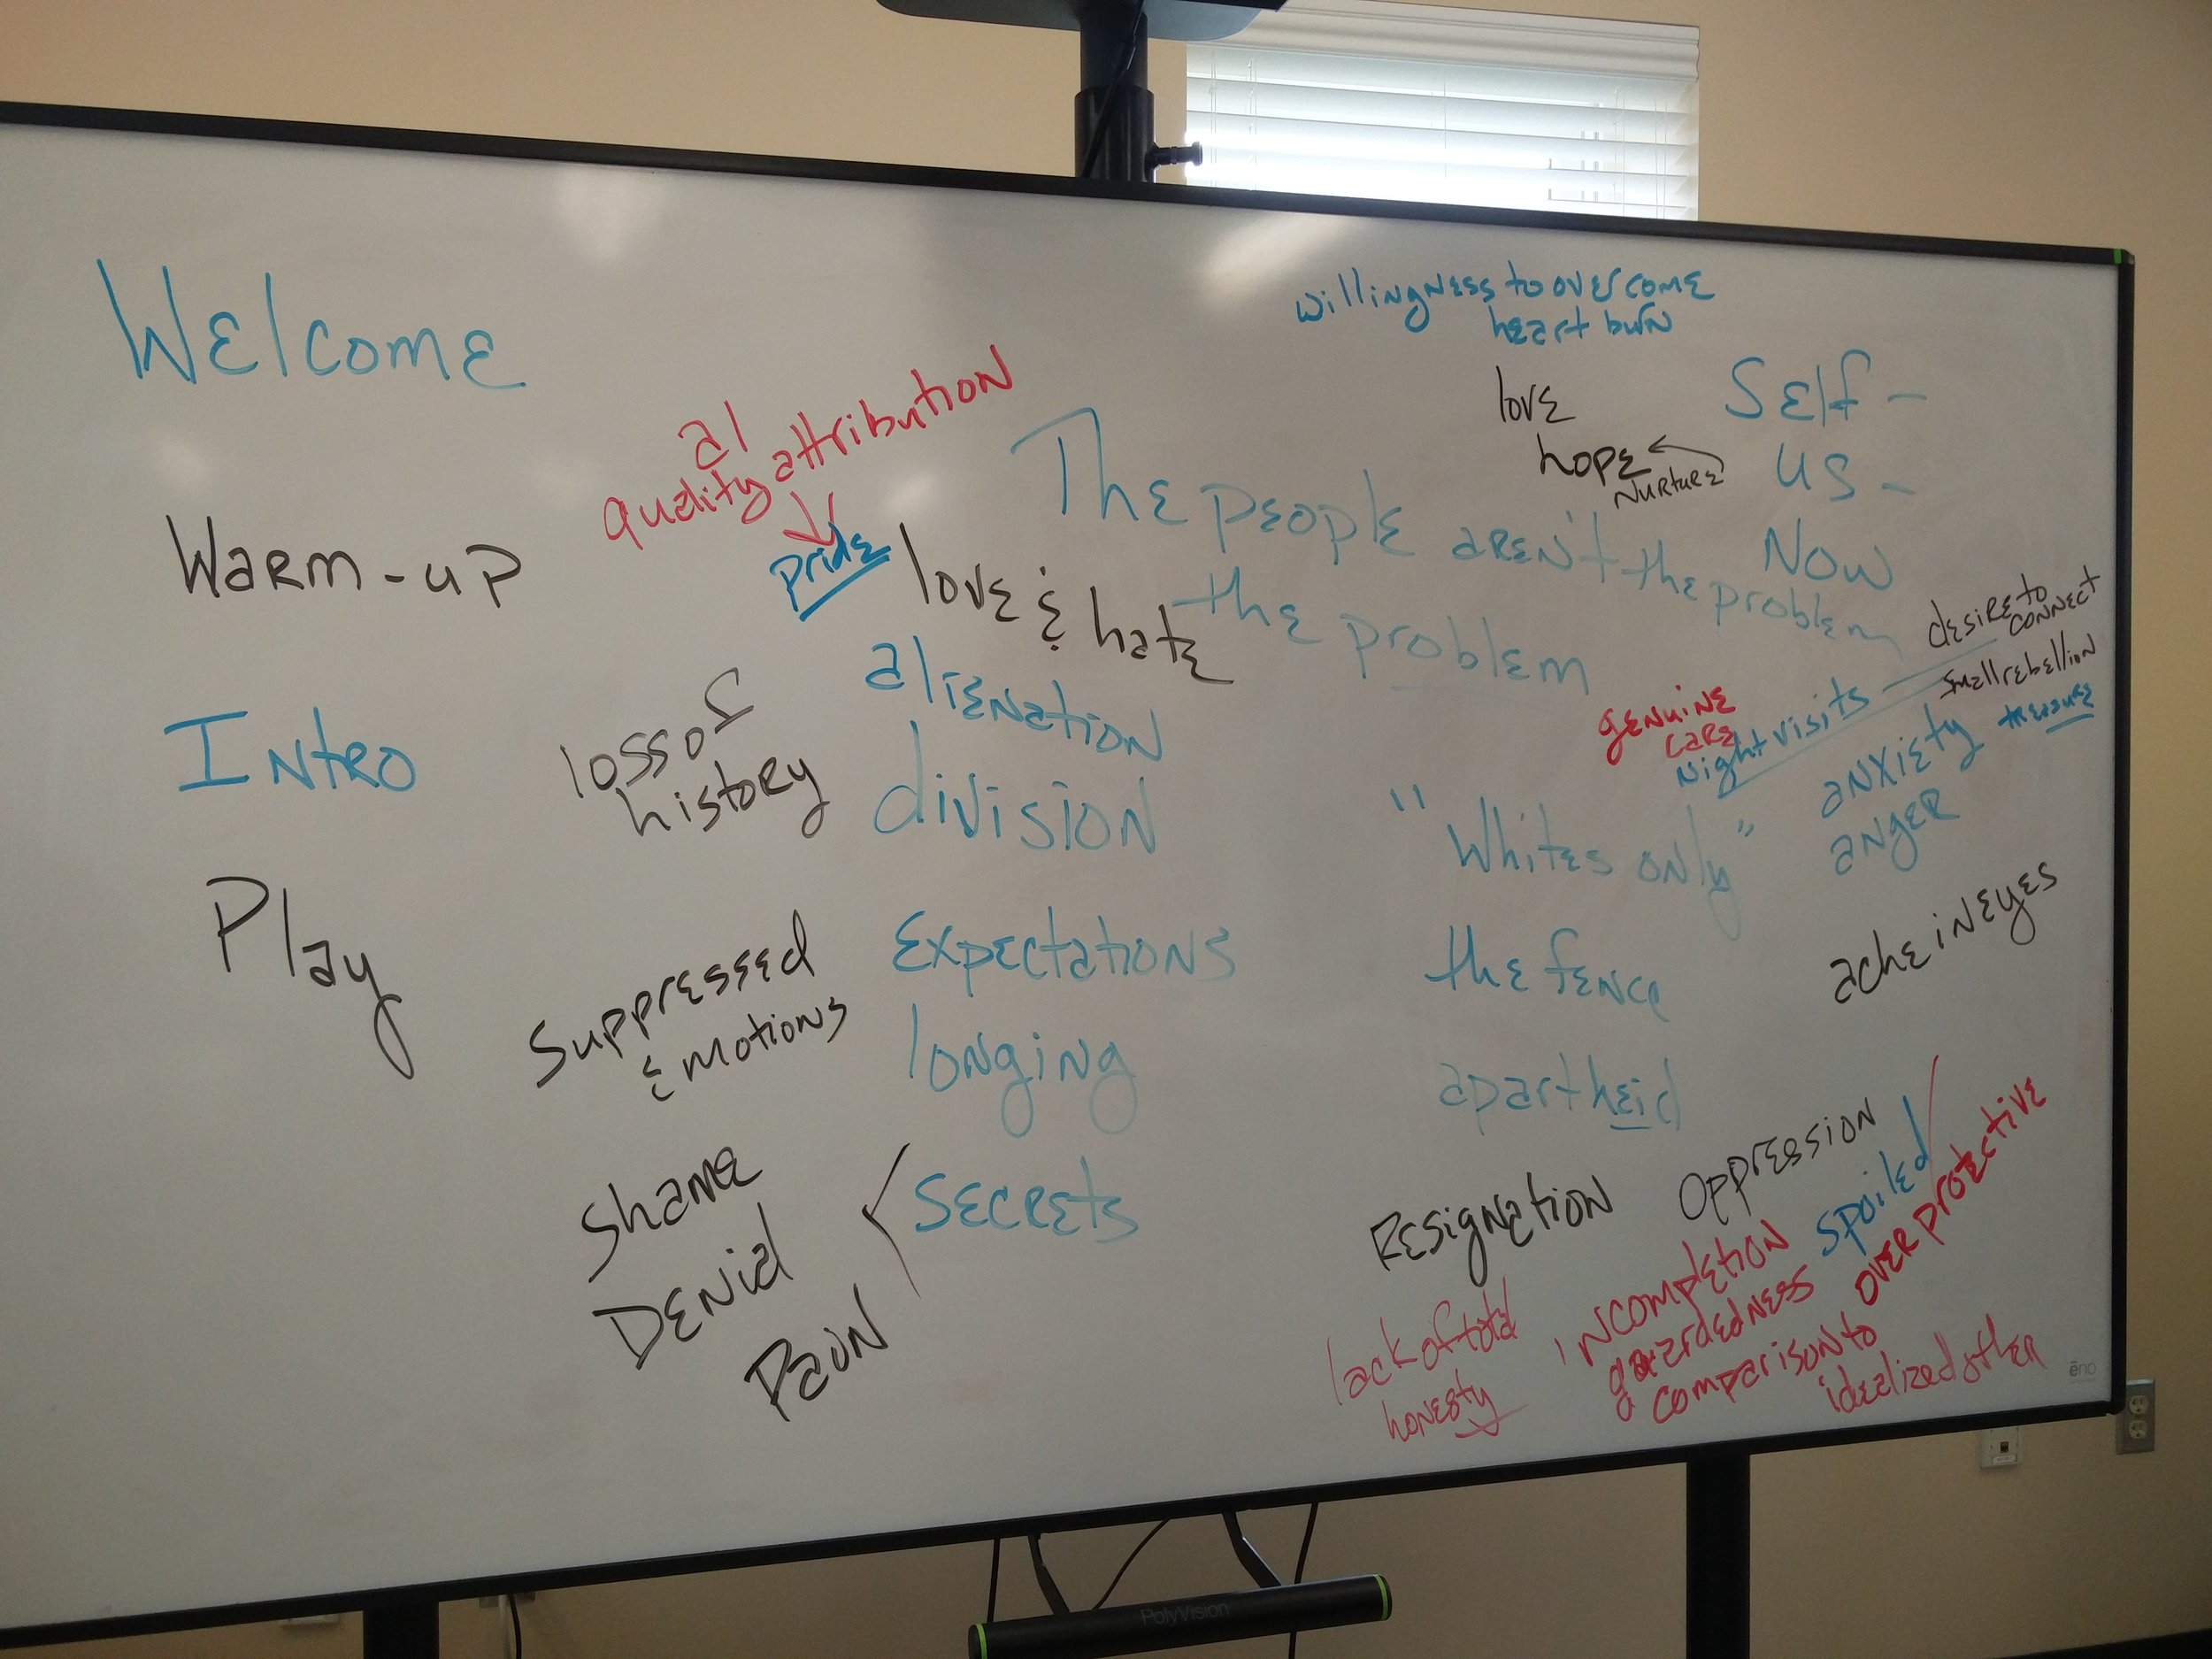 Welcome
Warm-up
Intro
Play
al
quality attribution
pride
love & hate
loss of
history
alienation
division
Suppressed
Emotions
Expectations
longing
Shame
Denial
Pain
Secrets
willingness to overcome
heart burn
love
hope
Nurture
Self -
us -
Now
The people aren't the problem
the problem
desire to
connect
small rebellion
treasure
genuine
care
Night visits
anxiety
anger
"Whites only"
the fence
ache in eyes
apartheid
Resignation
Oppression
spoiled
over protective
incompletion
guardedness
comparison to
idealized other
lack of total
honesty
ēno
PolyVision